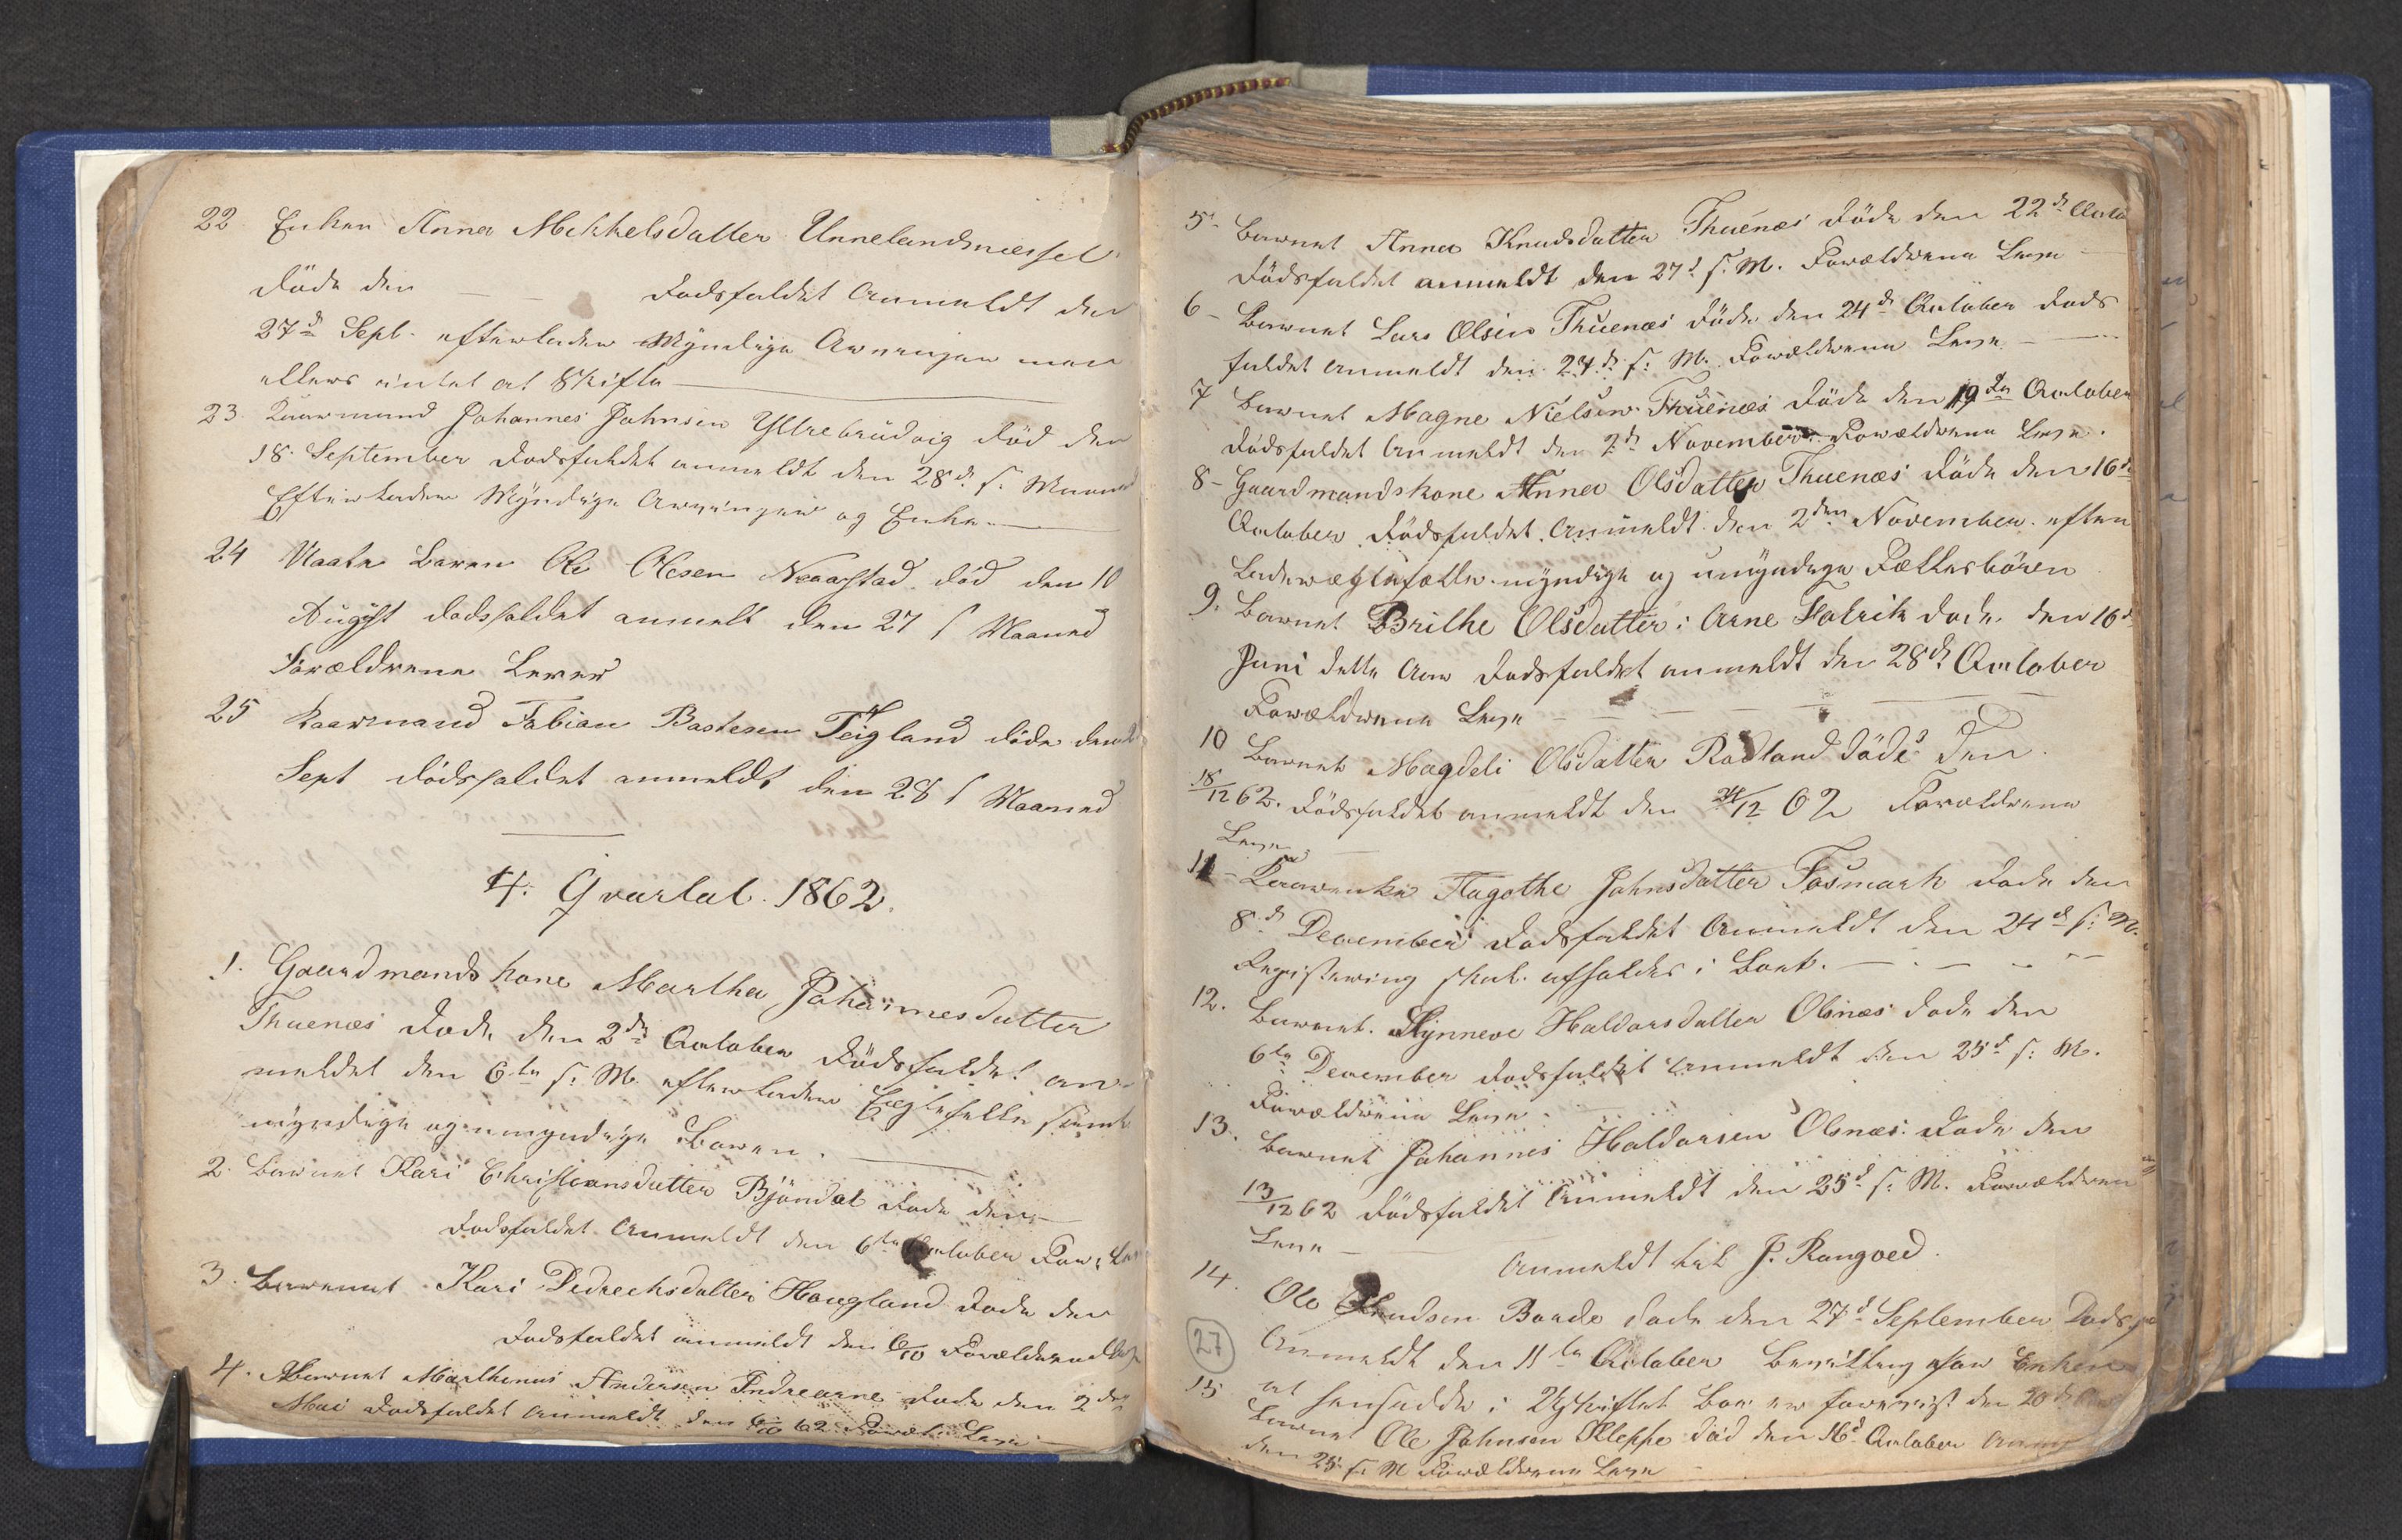 22 Enken Anna Mikkelsdatter Unnelandsnæsset
døde den – – Dødsfaldet Anmeldt den
27d Sept. efterlader Myndige Arvinger men
ellers intet at Skifte
23. Kaarmand Johannes Johnsen Yttrebrudvig død den
18. September Dødsfaldet anmeldt den 28d s. Maaned
Efterlader Myndige Arvinger og Enke
24 Naate Barn Ole Olesen Neraastad død den 10
August dødsfaldet anmelt den 27 s Maaned
Forældrene Lever
25 Kaarmand Fabian Bastesen Teigland døde den
Sept dødsfaldet anmeldt den 28 s Maaned
4. Qvartal. 1862.
1. Gaardmandskone Martha Johannesdatter
Thuenæs døde den 2d October Dødsfaldet an-
meldet den 6te s. M. efterlader Ægtefelle samt
myndige og umyndige Børn.
2. Barnet Kari Christiansdatter Bjöndal døde den –
Dødsfaldet Anmeldt den 6te October For:
3. Barnet Kari Diderechsdatter Hougland døde den
Dødsfaldet anmeldt den 6/10 Forældrene
4. Barnet Marthinus Andersen Indrearne døde den 2den
Mai Dødsfaldet Anmeldt den 6/10 62 Foræl: Leve
5. Barnet Anna Knudsdatter Thuenæs døde den 22d Octo
Dødsfaldet anmeldt den 27d s. M. Forældrene Leve –
6 – Barnet Lars Olsen Thuenæs døde den 24d October Døds
faldet Anmeldt den 27d s. M. Forældrene Leve –
7 Barnet Magne Nielsen Thuenæs døde den 19de October
Dødsfaldet Anmeldt den 2d November Forældrene Leve.
8 – Gaardmandskone Anna Olsdatter Thuenæs døde den 16d
October Dødsfaldet Anmeldt den 2den November. efter
lader Ægtefælle myndige og umyndige Fællesbörn
9. Barnet Brithe Olsdatter: Arne Fabrik døde den 16d
Juni dette Aar Dødsfaldet anmeldt den 28d October
Forældrene Leve – – – –
10 Barnet Magdeli Olsdatter Rødland döde den
18/12 62. Dødsfaldet anmeldt den 24/12 62 Forældrene
Leve
11 – Kaarenke Aagothe Johnsdatter Fosmark døde den
8d December Dødsfaldet Anmeldt den 24d s: M.
Registrering skal afholdes i Boet. – – –
12. Barnet. Synneve Haldorsdatter Olsnæs døde den
6te December dødsfaldet anmeldt den 25d s: M.
Forældrene Leve
13. Barnet Johannes Haldorsen Olsnæs døde den
13/12 62 Dødsfaldet Anmeldt den 25d s. M. Forældrene
Leve –
Anmeldt til J. Rongved.
14. Ole Knudsen Borde døde den 27d September Døds
Anmeldt den 11te October Bevilling for Enken
27
at hensidde i Uskiftet Bo er forevist den 20d
15 Barnet Ole Johnsen Kleppe död den 16d October
den 25. s. M Forældrene Leve